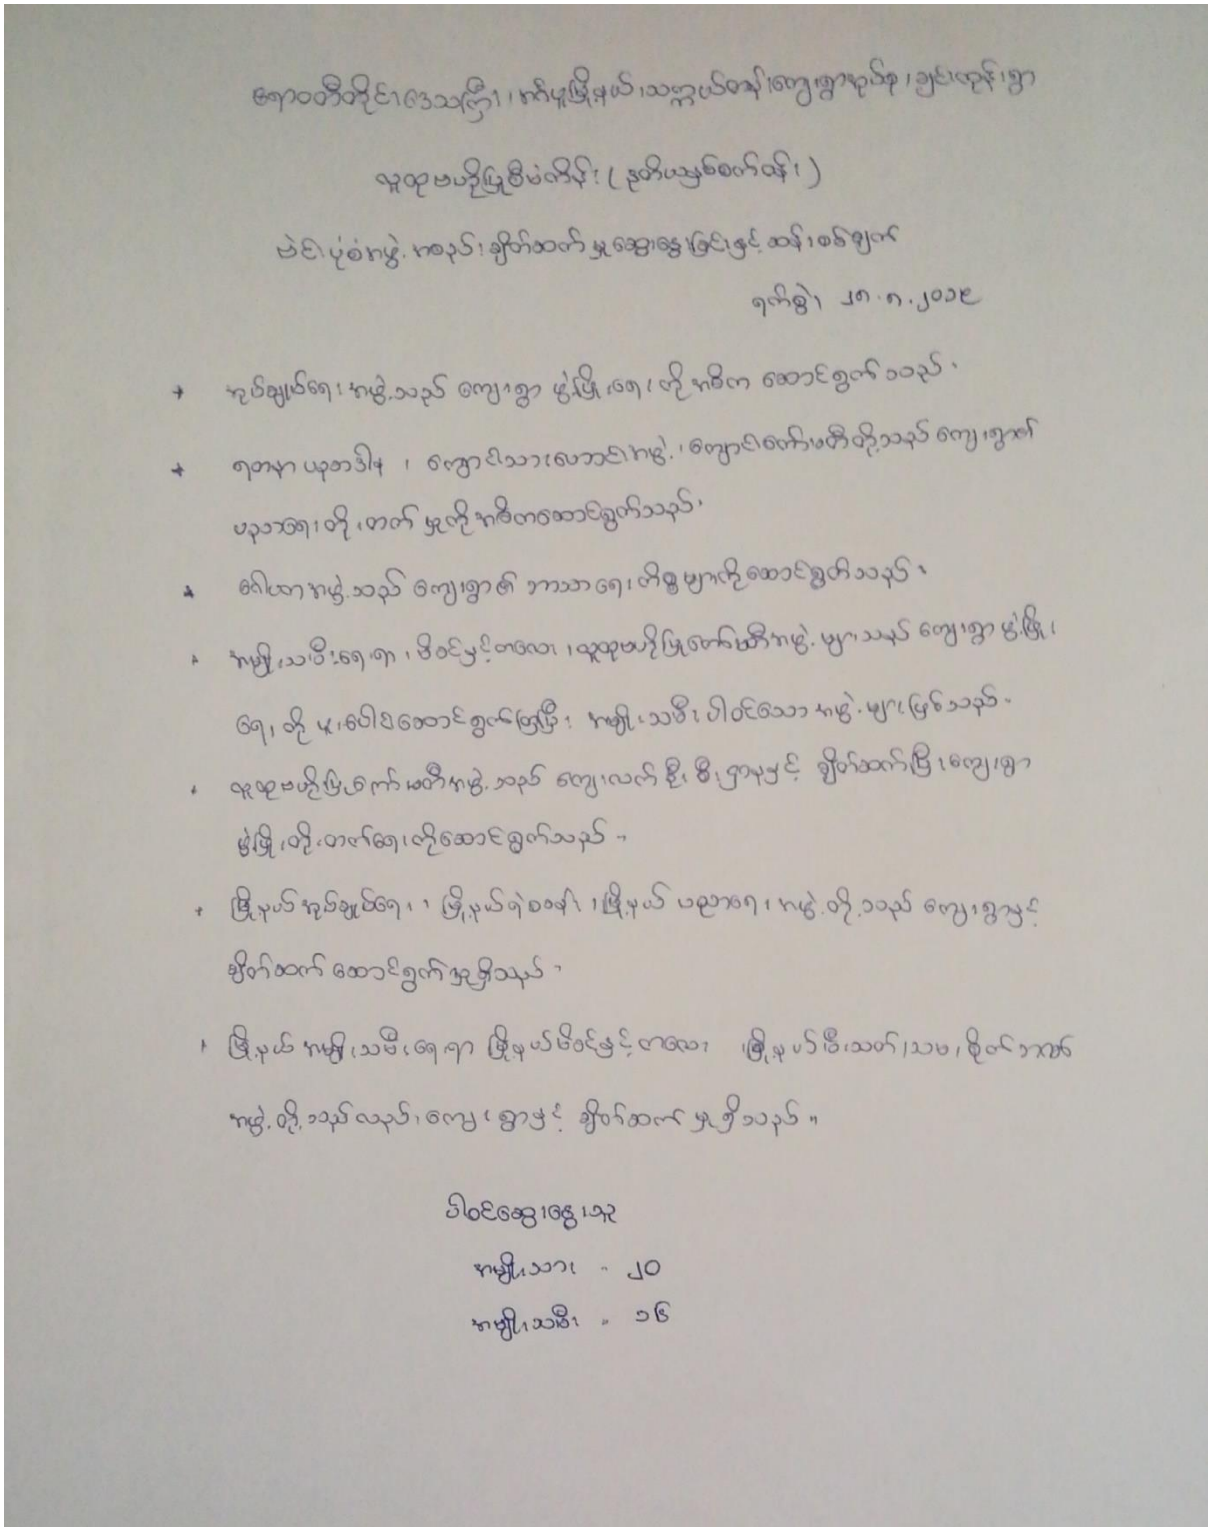 ဧရာဝတီတိုင်းဒေသကြီး၊ အင်္ဂပူမြို့နယ်၊ သက္ကယ်တန်းကျေးရွာအုပ်စု၊ ချင်းကုန်းရွာ
လူထုဗဟိုပြုစီမံကိန်း (ဒုတိယနှစ်စက်ဝန်း)
ဗင်းပုံစံအဖွဲ့အစည်းချိတ်ဆက်မှုဆွေးနွေးခြင်းနှင့် ဆန်းစစ်ချက်
ရက်စွဲ၊ ၂၈.၈.၂၀၁၉
* အုပ်ချုပ်ရေးအဖွဲ့သည် ကျေးရွာ ဖွံ့ဖြိုးရေးကို အဓိက ဆောင်ရွက်သည်။
* ရတနာ ပညာဒါန ၊ ကျောင်းသားဟောင်းအဖွဲ့ ၊ ကျောင်းကော်မတီတို့သည် ကျေးရွာ၏
ပညာရေးတိုးတက်မှုကို အဓိကဆောင်ရွက်သည်။
* ဂေါပကအဖွဲ့သည် ကျေးရွာ၏ ဘာသာရေးကိစ္စများကိုဆောင်ရွက်သည်။
* အမျိုးသမီးရေးရာ ၊ မိခင်နှင့်ကလေး ၊ လူထုဗဟိုပြုကော်မတီအဖွဲ့များသည် ကျေးရွာဖွံ့ဖြိုး
ရေးကို ပူးပေါင်းဆောင်ရွက်ကြပြီး အမျိုးသမီးပါဝင်သော အဖွဲ့များဖြစ်သည်။
* လူထုဗဟိုပြုကော်မတီအဖွဲ့သည် ကျေးလက်ဦးစီးဌာနနှင့် ချိတ်ဆက်ပြီးကျေးရွာ
ဖွံ့ဖြိုးတိုးတက်ရေးကိုဆောင်ရွက်သည်။
* မြို့နယ်အုပ်ချုပ်ရေး ၊ မြို့နယ်ရဲစခန်း ၊ မြို့နယ် ပညာရေးအဖွဲ့တို့သည် ကျေးရွာနှင့်
ချိတ်ဆက် ဆောင်ရွက်မှုရှိသည်။
* မြို့နယ် အမျိုးသမီးရေးရာ မြို့နယ်မိခင်နှင့်ကလေး ၊မြို့နယ်မီးသတ်၊သမ၊စိုက်ဘဏ်
အဖွဲ့တို့သည်လည်းကျေးရွာနှင့် ချိတ်ဆက်မှုရှိသည်။
ပါဝင်ဆွေးနွေးသူ
အမျိုးသား - ၂၀
အမျိုးသမီး - ၁၆